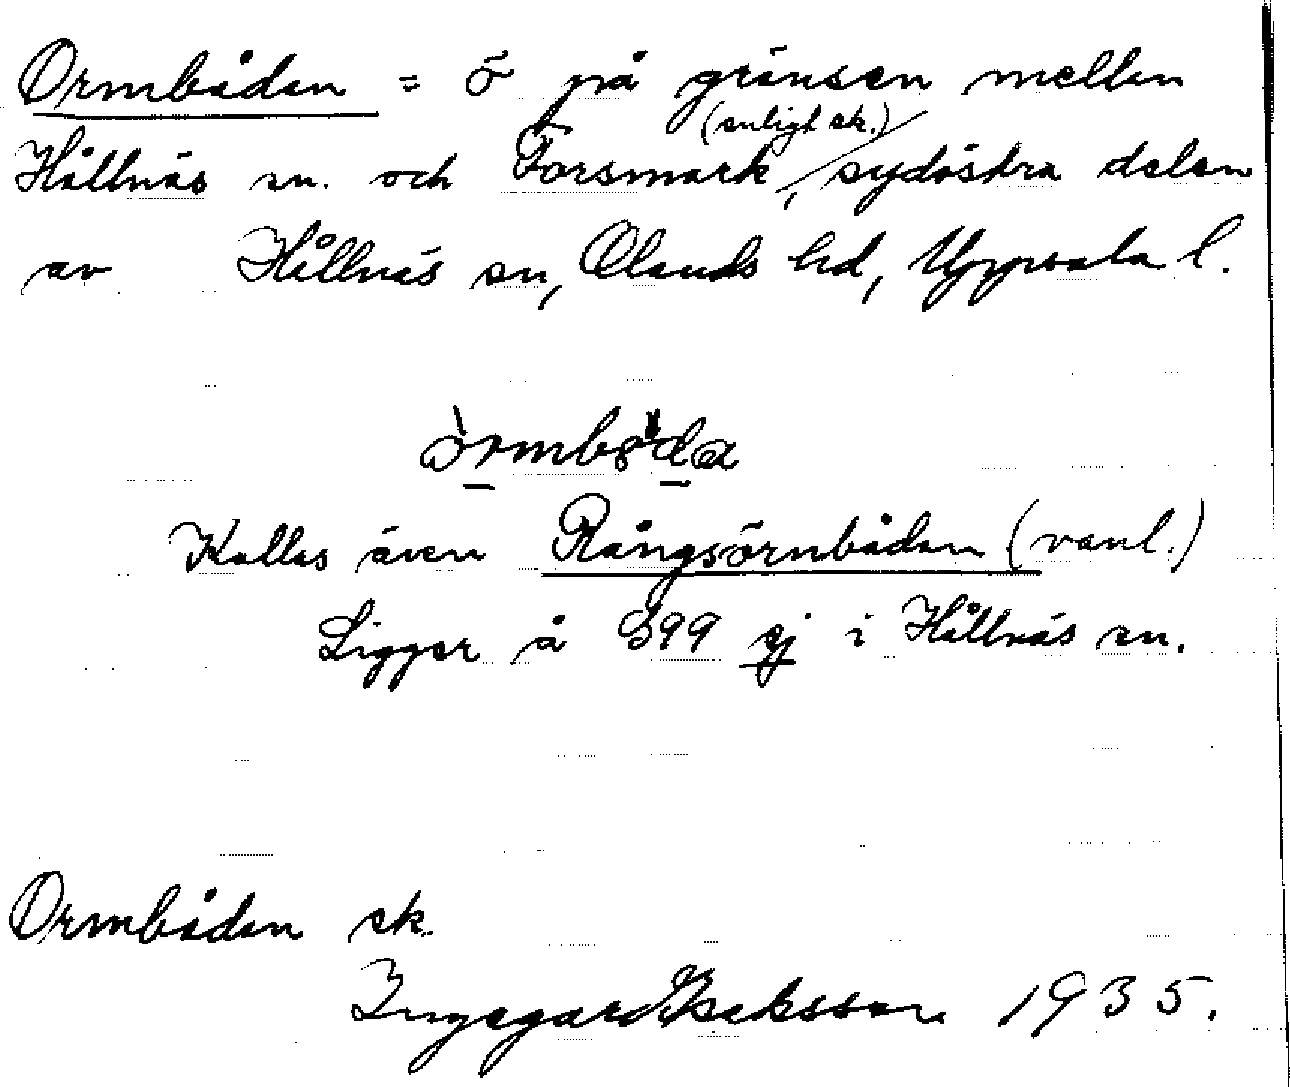 Ormbådan = ö på gränsen mellan
(enligt ek.)
Hållnäs sn. och Forsmark, sydöstra delen
av Hållnäs sn, Olands hd, Uppsala l.
Kallas även Rångsörnbådan (vanl.)
Ligger å S99 ej i Hållnäs sn.
Ormbådan ek.
Ingegard Isaksson 1935.